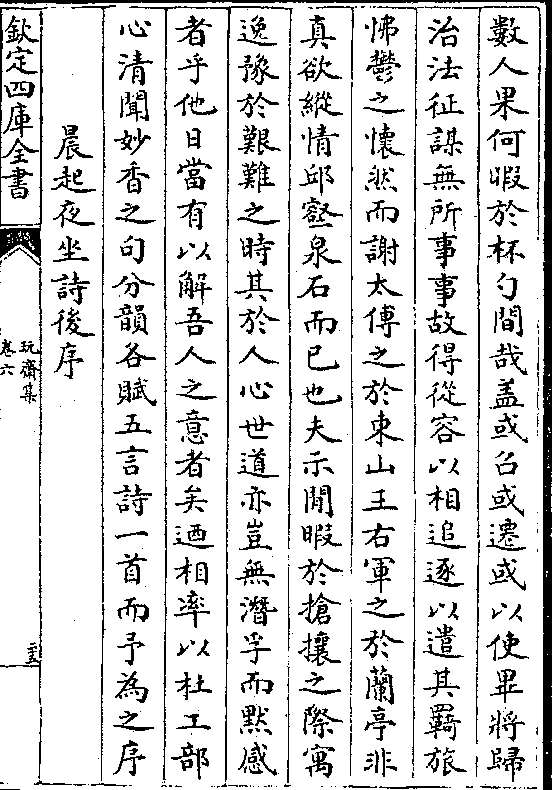 數人果何暇於杯勺間哉蓋或召或遷或以使畢將歸
治法征謀無所事事故得從容以相追逐以遣其羇旅
怫鬱之懷然而謝太傅之於東山王右軍之於蘭亭非
真欲縱情邱壑泉石而已也夫示閒暇於搶攘之際寓
逸豫於艱難之時其於人心世道亦豈無潛孚而默感
者乎他日當有以解吾人之意者矣迺相率以杜工部
心清聞妙香之句分韻各賦五言詩一首而予為之序
晨起夜坐詩後序
欽定四庫全書
玩齋集
卷六